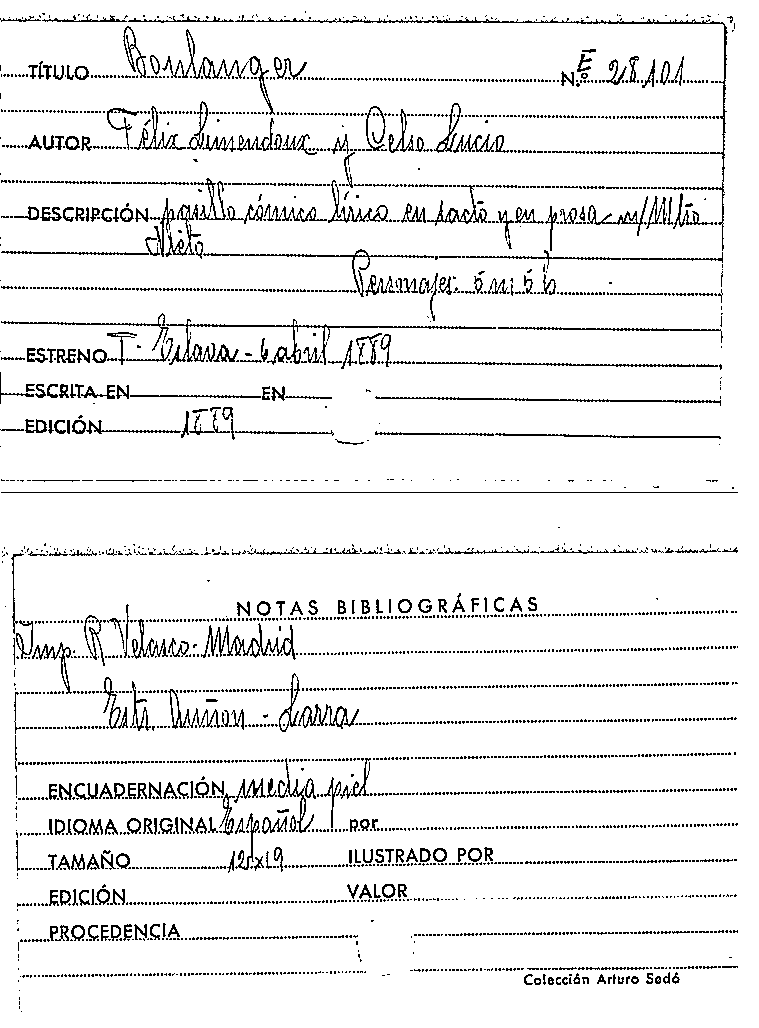 TÍTULO Boulanger N.º E 28.101
AUTOR Félix Limendoux y Celso Lucio
DESCRIPCIÓN pasillo cómico lírico en 1 acto y en prosa m/ Mtro
Nieto
Personajes: 5 m; 5 h
ESTRENO T. Eslava - 6 abril 1889
ESCRITA EN EN
EDICIÓN 1889
NOTAS BIBLIOGRÁFICAS
Imp. R Velasco - Madrid
Estr. - Larra
ENCUADERNACIÓN media piel
IDIOMA ORIGINAL Español por
TAMAÑO 12x19 ILUSTRADO POR
EDICIÓN VALOR
PROCEDENCIA
Colección Arturo Sedó